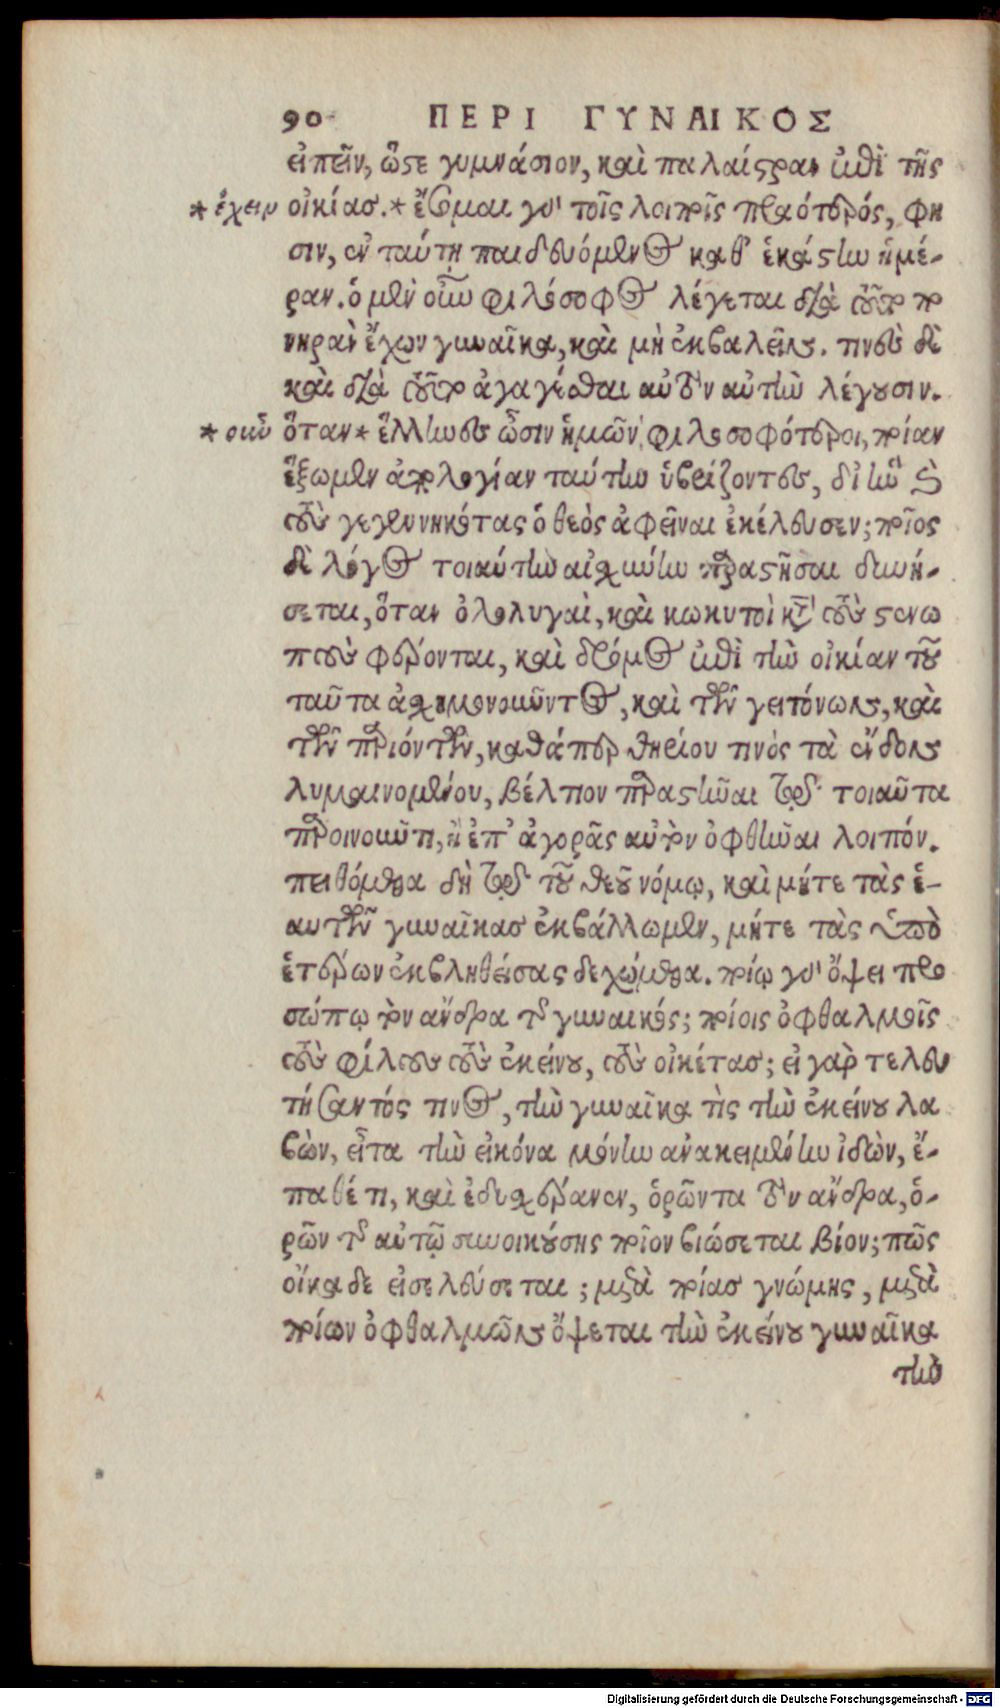 90 ΠΕΡΙ ΓΥΝΑΙΚΟΣ
εἰπεῖν, ὥστε γυμνάσιον, καὶ παλαίστραν ἐπὶ τῆς
* ἔχειν οἰκίας. * ἔσομαι γὰρ τοῖς λοιποῖς πραότερός, φη
σιν, ἐν ταύτῃ παιδευόμενος καθ' ἑκάστην ἡμέ-
ραν. ὁ μὲν οὖν φιλόσοφος λέγεται διὰ τοῦτο πο
νηρὰν ἔχων γυναῖκα, καὶ μὴ ἐκβαλεῖν. τινὲς δὲ
καὶ διὰ τοῦτο ἀγαγέσθαι αὐτὸν αὐτὴν λέγουσιν.
* οὖν ὅταν * ἕλληνες ὦσιν ἡμῶν φιλοσοφότεροι, ποίαν
ἕξωμεν ἀπολογίαν ταύτην ὑβρίζοντες, δι' ἣν καὶ
τοὺς γεγεννηκότας ὁ θεὸς ἀφεῖναι ἐκέλευσεν; ποῖος
δὲ λόγος τοιαύτην αἰσχύνην παραστῆσαι δυνή-
σεται, ὅταν ὀλολυγαὶ, καὶ κωκυτοὶ κατὰ τοὺς στενω
ποὺς φέρονται, καὶ δρόμος ἐπὶ τὴν οἰκίαν τοῦ
ταῦτα ἀσχημονοῦντος, καὶ τῶν γειτόνων, καὶ
τῶν παριόντων, καθάπερ θηρίου τινὸς τὰ ἔνδον
λυμαινομένου, βέλτιον παραστῆναι τῷ τοιαῦτα
παροινοῦντι, ἢ ἐπ' ἀγορᾶς αὐτὸν ὀφθῆναι λοιπόν.
πειθόμεθα δὴ τῷ τοῦ θεοῦ νόμῳ, καὶ μήτε τὰς ἑ-
αυτῶν γυναῖκας ἐκβάλλωμεν, μήτε τὰς ὑπὸ
ἑτέρων ἐκβληθείσας δεχώμεθα. ποίῳ γὰρ ὄψει προ
σώπῳ τὸν ἄνδρα τῆς γυναικός; ποίοις ὀφθαλμοῖς
τοὺς φίλους τοὺς ἐκείνου, τοὺς οἰκέτας; εἰ γὰρ τελευ
τήσαντός τινος, τὴν γυναῖκα τὶς τὴν ἐκείνου λα
βὼν, εἶτα τὴν εἰκόνα μόνην ἀνακειμένην ἰδὼν, ἔ-
παθέ τι, καὶ ἐδυσχέρανεν, ὁρῶντα τὸν ἄνδρα, ὁ-
ρῶν τῆς αὐτῷ συνοικούσης ποῖον βιώσεται βίον; πῶς
οἴκαδε εἰσελεύσεται; μετὰ ποίας γνώμης, μετὰ
ποίων ὀφθαλμῶν ὄψεται τὴν ἐκείνου γυναῖκα
τὴν
Digitalisierung gefördert durch die Deutsche Forschungsgemeinschaft - DFG